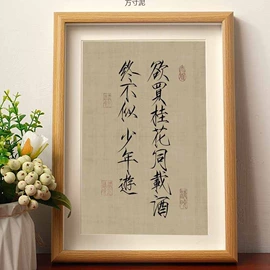 方寸泥
欲買桂花同載酒
終不似少年遊